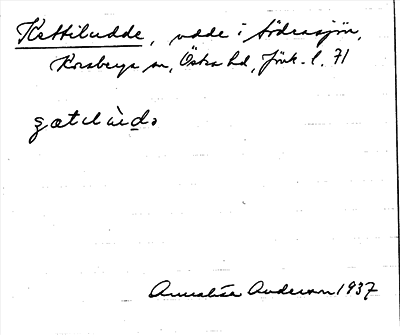 Kettiludde, udde i Södrasjön,
Korsberga sn, Östra hd, Jönk. l. 71
Annalisa Anderson 1937